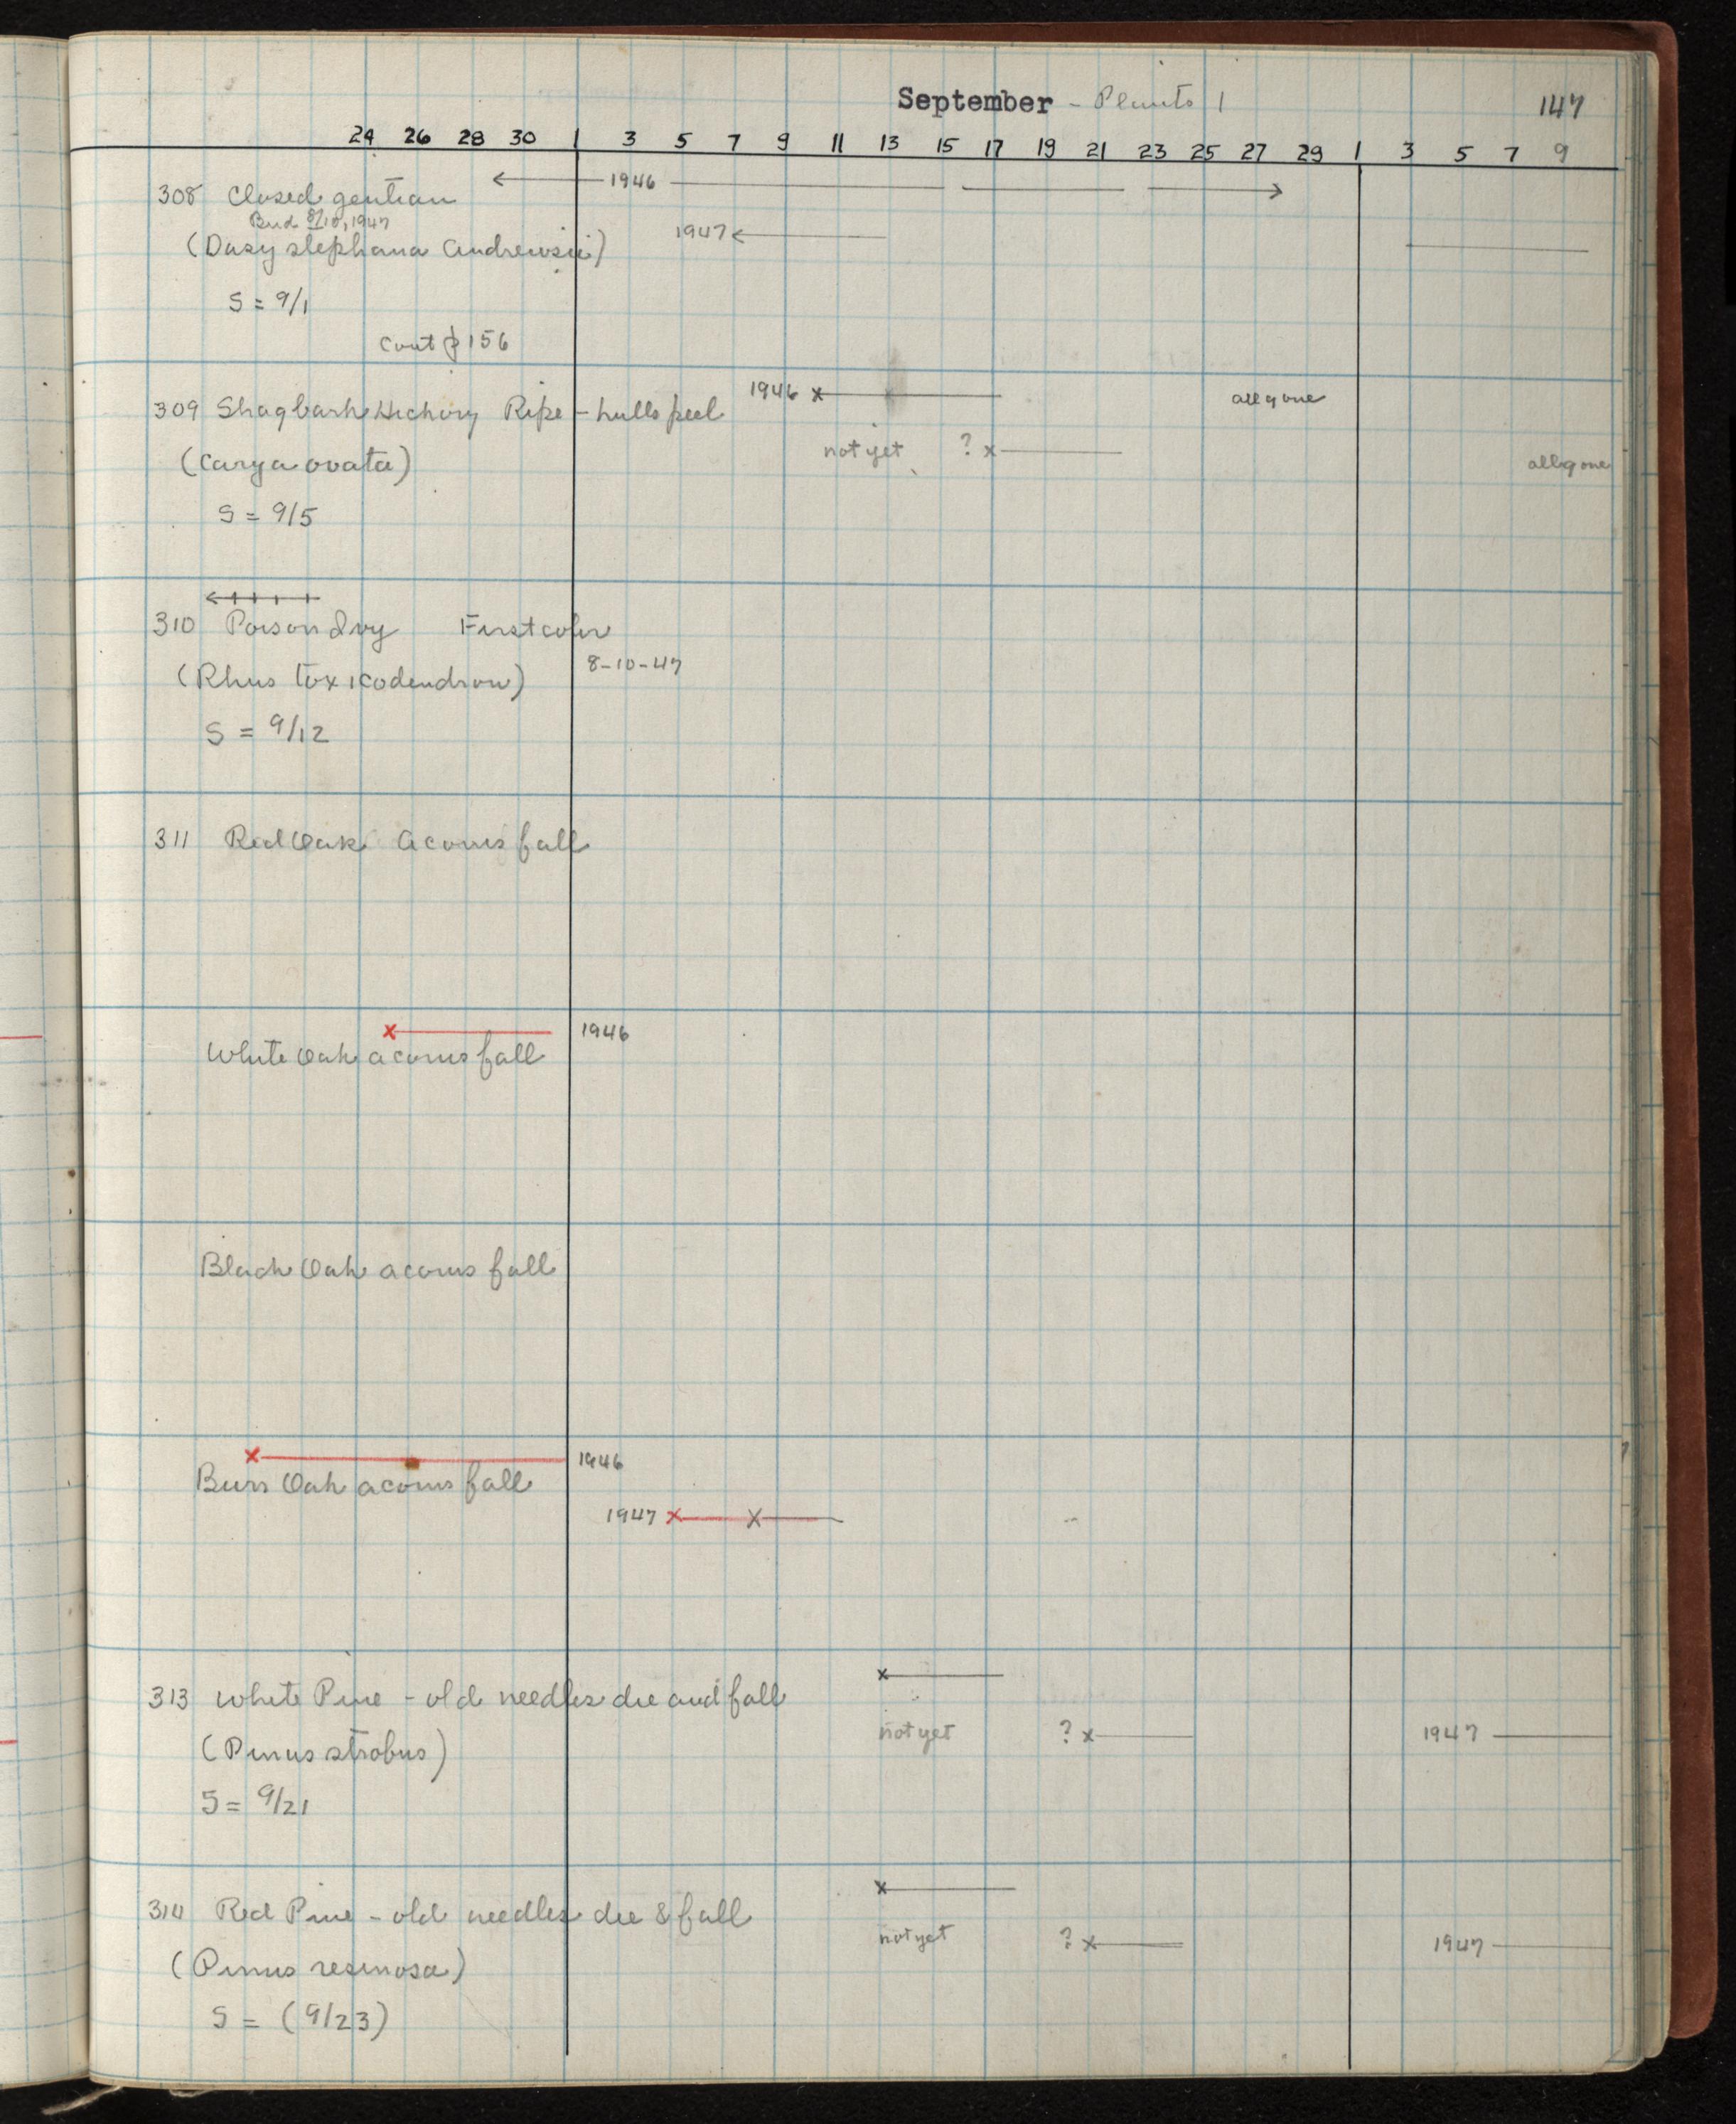 September - Plants 1 147
24 26 28 30 1 3 5 7 9 11 13 15 17 19 21 23 25 27 29 1 3 5 7 9
308 Closed gentian 1946
Bud 8/10, 1947
(Dasystephana Andrewsii) 1947
S = 9/1
Cont p 156
309 Shagbark Hickory Ripe - hulls peel 1946 all gone
(Carya ovata) not yet ? x all gone
S = 9/5
310 Poison Ivy First color
(Rhus toxicodendron) 8-10-47
S = 9/12
311 Red Oak Acorns fall
White Oak acorns fall x 1946
Black Oak acorns fall
Burr Oak acorns fall x 1946
1947 x x
313 White Pine - old needles die and fall x
(Pinus strobus) not yet ? x 1947
S = 9/21
314 Red Pine - old needles die & fall x
(Pinus resinosa) not yet ? x 1947
S = (9/23)